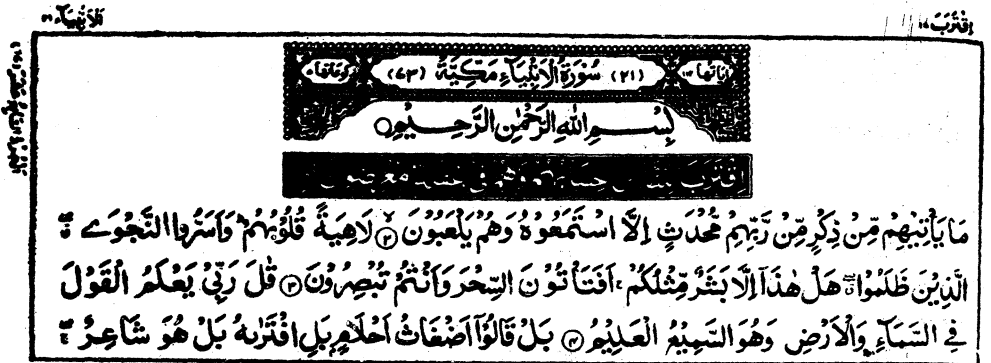 اِقْتَرَبَ ١٧
اَلْاَنْۢبِيَآء ٢١
(٢١) سُوْرَةُ الْاَنْۢبِيَآءِ مَكِّيَّةٌ (٧٣)
بِسْمِ اللهِ الرَّحْمٰنِ الرَّحِيْمِ
اِقْتَرَبَ لِلنَّاسِ حِسَابُهُمْ وَهُمْ فِيْ غَفْلَةٍ مُّعْرِضُوْنَ
مَا يَأْتِيْهِمْ مِّنْ ذِكْرٍ مِّنْ رَّبِّهِمْ مُّحْدَثٍ اِلَّا اسْتَمَعُوْهُ وَهُمْ يَلْعَبُوْنَ ۝٢ لَاهِيَةً قُلُوْبُهُمْ ؕ وَاَسَرُّوا النَّجْوَے
الَّذِيْنَ ظَلَمُوْا هَلْ هٰذَاۤ اِلَّا بَشَرٌ مِّثْلُكُمْ ۚ اَفَتَاْتُوْنَ السِّحْرَ وَاَنْتُمْ تُبْصِرُوْنَ ۝٣ قٰلَ رَبِّيْ يَعْلَمُ الْقَوْلَ
فِي السَّمَآءِ وَالْاَرْضِ وَهُوَ السَّمِيْعُ الْعَلِيْمُ ۝٤ بَلْ قَالُوْۤا اَضْغَاثُ اَحْلَامٍۭ بَلِ افْتَرٰىهُ بَلْ هُوَ شَاعِرٌ